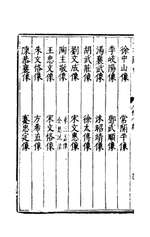 徐中山像　常開平像
李岐陽像　鄧武順像
湯襄武像　沐昭靖像
胡武莊像　徐太傅像
劉文成像　宋文憲像
陶主敬像
王忠文像　宋文恪像
朱文恪像　方希直像
陳恭襄像　蹇忠定像